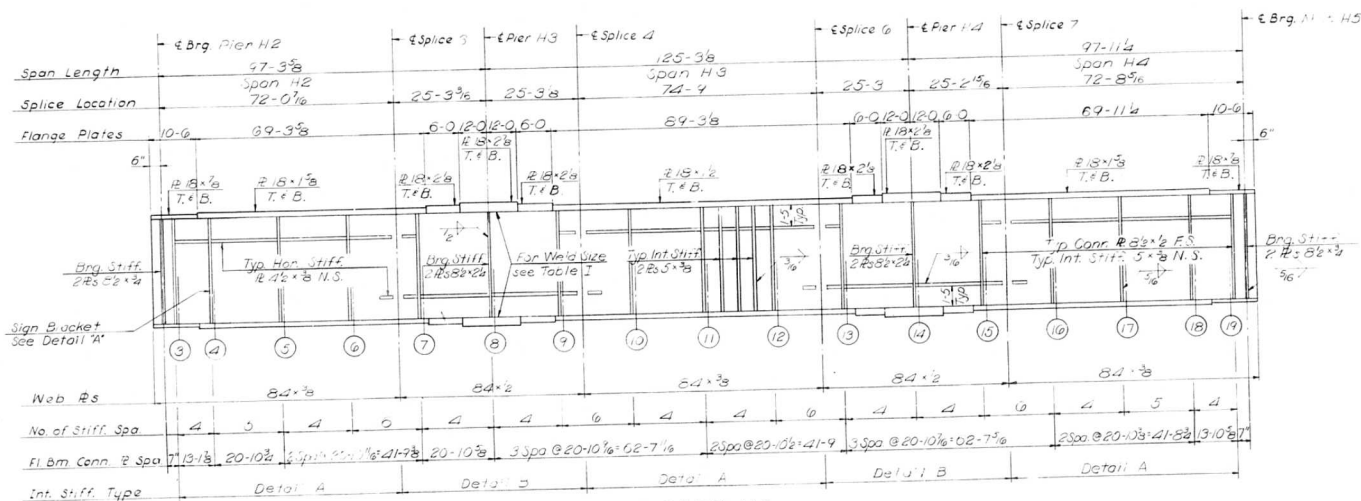 ℄ Brg. Pier H2
℄ Splice
℄ Pier H3
℄ Splice 4
℄ Splice 6
℄ Pier H4
℄ Splice 7
℄ Brg. H5
Span Length 97-3⅝ 125-3⅛ 97-11¼
Span H2 Span H3 Span H4
Splice Location 72-0⁷⁄₁₆ 25-3³⁄₁₆ 25-3⅛ 74-9 25-3 25-2¹⁵⁄₁₆ 72-8⁵⁄₁₆
Flange Plates 10-6 69-3⅝ 6-0 12-0 12-0 6-0 89-3⅛ 6-0 12-0 12-0 6-0 69-11¼ 10-6
6" 6"
℄ 18×⅞ T. & B.
℄ 18×1⅝ T. & B.
℄ 18×2⅛ T. & B.
℄ 18×2⅞ T. & B.
℄ 18×2⅛ T. & B.
℄ 18×1½ T. & B.
℄ 18×2⅛ T. & B.
℄ 18×2⅞ T. & B.
℄ 18×2⅛ T. & B.
℄ 18×1⅝ T. & B.
℄ 18×⅞ T. & B.
Brg. Stiff.
2 ℄s 8½×¾
Typ. Hor. Stiff.
℄ 4½×⅜ N.S.
Brg. Stiff.
2 ℄s 8½×2¼
For Weld Size
see Table I
Typ. Int. Stiff.
2 ℄s 5×⅜
1-5 Typ.
3/16
Brg. Stiff.
2 ℄s 8½×2¼
1-5 Typ.
5/16
Typ. Conn. ℄ 8½×½ F.S.
Typ. Int. Stiff. 5×⅜ N.S.
5/16
Brg. Stiff.
2 ℄s 8½×¾
5/16
Sign Bracket
See Detail "A"
3 4 5 6 7 8 9 10 11 12 13 14 15 16 17 18 19
Web ℄s 84×⅜ 84×½ 84×⅜ 84×½ 84×⅜
No. of Stiff. Spa. 4 5 4 6 4 4 6 4 4 6 4 4 6 4 5 4
Fl. Bm. Conn. ℄ Spa. 7" 13-1⅛ 20-10¾ 41-9⅜ 20-10⅝ 3 Spa @ 20-10⁹⁄₁₆=62-7¹¹⁄₁₆ 2 Spa @ 20-10½=41-9 3 Spa @ 20-10⁷⁄₁₆=62-7⁵⁄₁₆ 2 Spa. @ 20-10⅜=41-8¾ 13-10⅝ 7"
Int. Stiff. Type Detail A Detail B Detail A Detail B Detail A